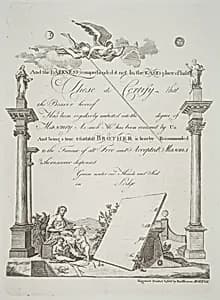 And the DARKNESS comprehended it not. In the EAST a place of Light
These do Certify That
the Bearer hereof
Has been regularly initiated into the degree of
Masonry As such He has been received by Us
And being a true & faithfull BROTHER is hereby Recommended
to the Favour of all Free and Accepted MASONS
Wheresoever dispersed
Given under our Hands and Seal
in Lodge